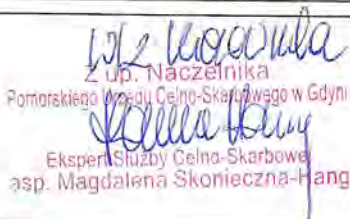 Z up. Naczelnika
Pomorskiego Urzędu Celno-Skarbowego w Gdyni
Ekspert Służby Celno-Skarbowej
asp. Magdalena Skonieczna-Hang